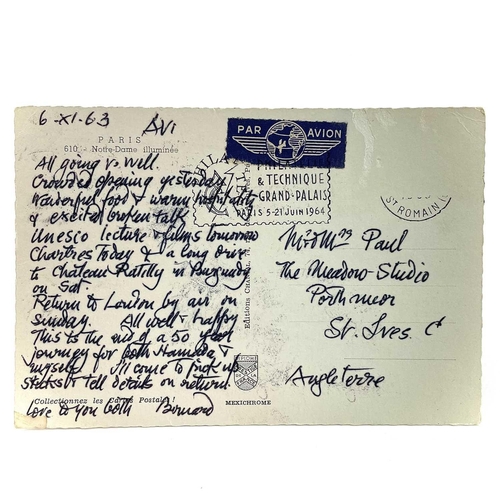 6-XI-63
PARIS
610 - Notte-Dame illuminée
AVi
All going v. well.
Crowded opening yesterday
Wonderful food & warm hospitality
& excited broken talk
Unesco lecture & films tomorrow
Chartres Today & a long drive
to Château Ratilly in Burgundy
on Sat.
Return to London by air on
Sunday. All well & happy
This to the end of a 50 year
journey for both Hamada &
myself I'll come to pick up
& tell details on return.
Love to you both Bernard
Collectionnez les Cartes Postales !
MEXICHROME
PAR AVION
& TECHNIQUE
GRAND-PALAIS
PARIS 5-21 JUIN 1964
ST ROMAIN
Mr & Mrs Paul
The Meadow Studio
Porthmeor
St. Ives C
Angleterre